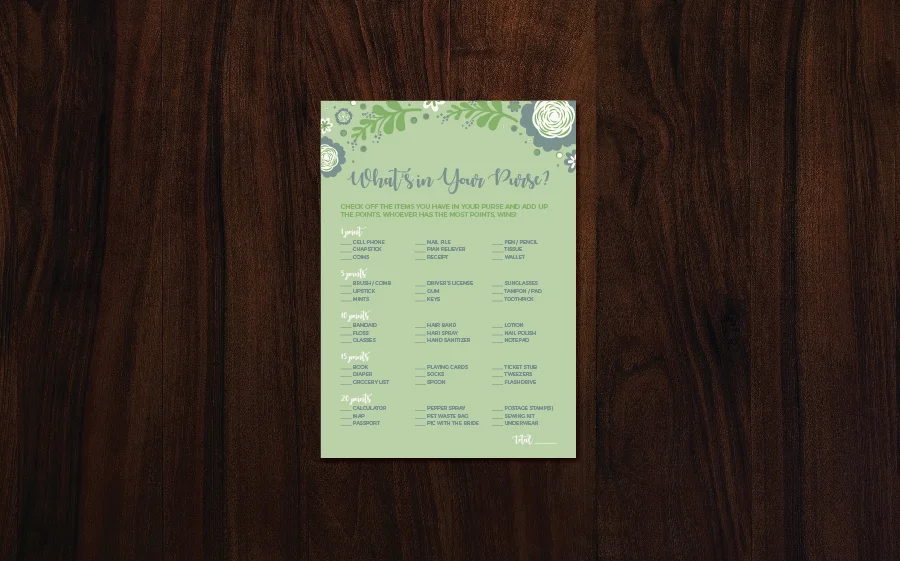 What's in Your Purse?
CHECK OFF THE ITEMS YOU HAVE IN YOUR PURSE AND ADD UP
THE POINTS, WHOEVER HAS THE MOST POINTS, WINS!
1 point
___ CELL PHONE ___ NAIL FILE ___ PEN / PENCIL
___ CHAPSTICK ___ PIAN RELIEVER ___ TISSUE
___ COINS ___ RECEIPT ___ WALLET
5 points
___ BRUSH / COMB ___ DRIVER'S LICENSE ___ SUNGLASSES
___ LIPSTICK ___ GUM ___ TAMPON / PAD
___ MINTS ___ KEYS ___ TOOTHPICK
10 points
___ BANDAID ___ HAIR BAND ___ LOTION
___ FLOSS ___ HARI SPRAY ___ NAIL POLISH
___ GLASSES ___ HAND SANITIZER ___ NOTEPAD
15 points
___ BOOK ___ PLAYING CARDS ___ TICKET STUB
___ DIAPER ___ SOCKS ___ TWEEZERS
___ GROCERY LIST ___ SPOON ___ FLASH DRIVE
20 points
___ CALCULATOR ___ PEPPER SPRAY ___ POSTAGE STAMP(S)
___ MAP ___ PET WASTE BAG ___ SEWING KIT
___ PASSPORT ___ PIC WITH THE BRIDE ___ UNDERWEAR
Total ____